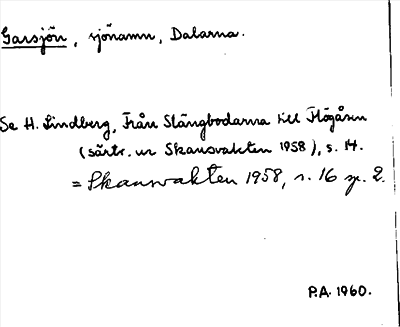 Garsjön, sjönamn, Dalarna.
Se H. Lindberg, Från Stängbodarna till Flögåsen
(särtr. ur Skansvakten 1958), s. 14.
= Skansvakten 1958, s. 16 sp. 2.
P.A. 1960.